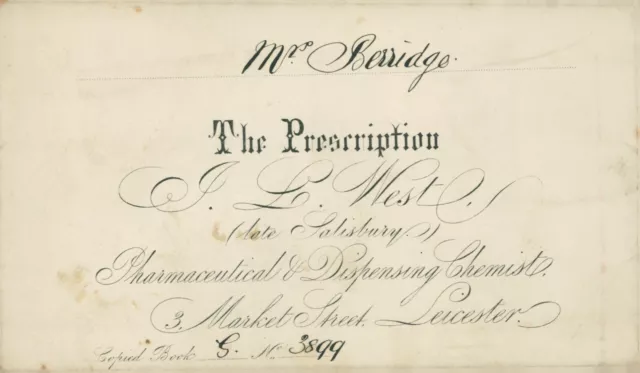 Mrs Berridge.
The Prescription
J. L. West
(late Salisbury.)
Pharmaceutical & Dispensing Chemist.
3, Market Street, Leicester.
Copied Book G. No 3899